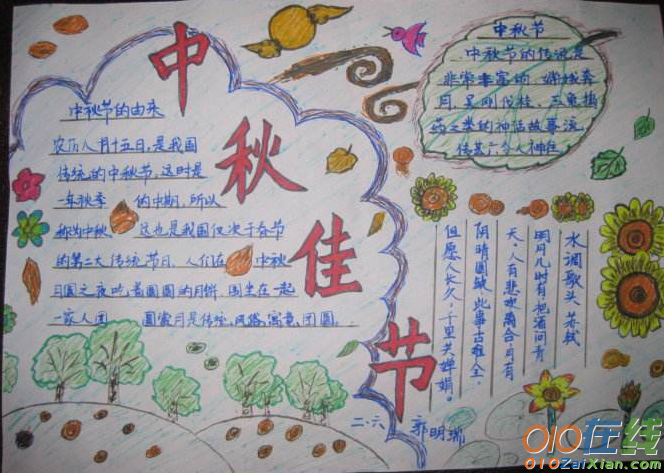 中秋佳节
中秋节的由来
农历八月十五日,是我国
传统的中秋节,这时是
一年秋季 的中期,所以
称为中秋 这也是我国仅次于春节
的第二大传统节日,人们在 中秋
月圆之夜吃着圆圆的月饼,围坐在一起
一家人团 圆赏月是传统,风俗,寓意,团圆。
中秋节
中秋节的传说是
非常丰富的,嫦娥奔
月,吴刚伐桂,玉兔捣
药之类的神话故事流
传甚广
水调歌头 苏轼
明月几时有把酒问青
天。人有悲欢离合月有
阴晴圆缺,此事古难全。
但愿人长久,千里共婵娟。
二.六 郭明瑞
010在线
010ZaiXian.com